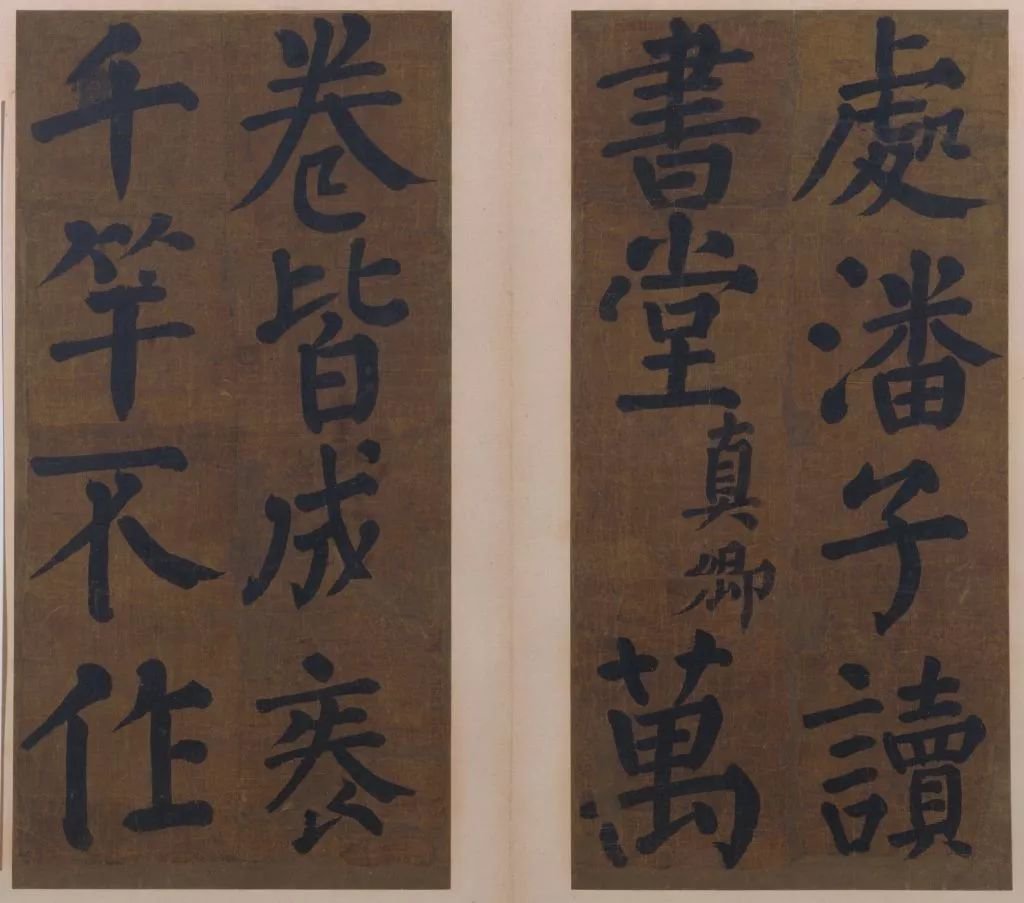 處潘子讀
書堂真卿萬
卷皆成袠
千竿不作